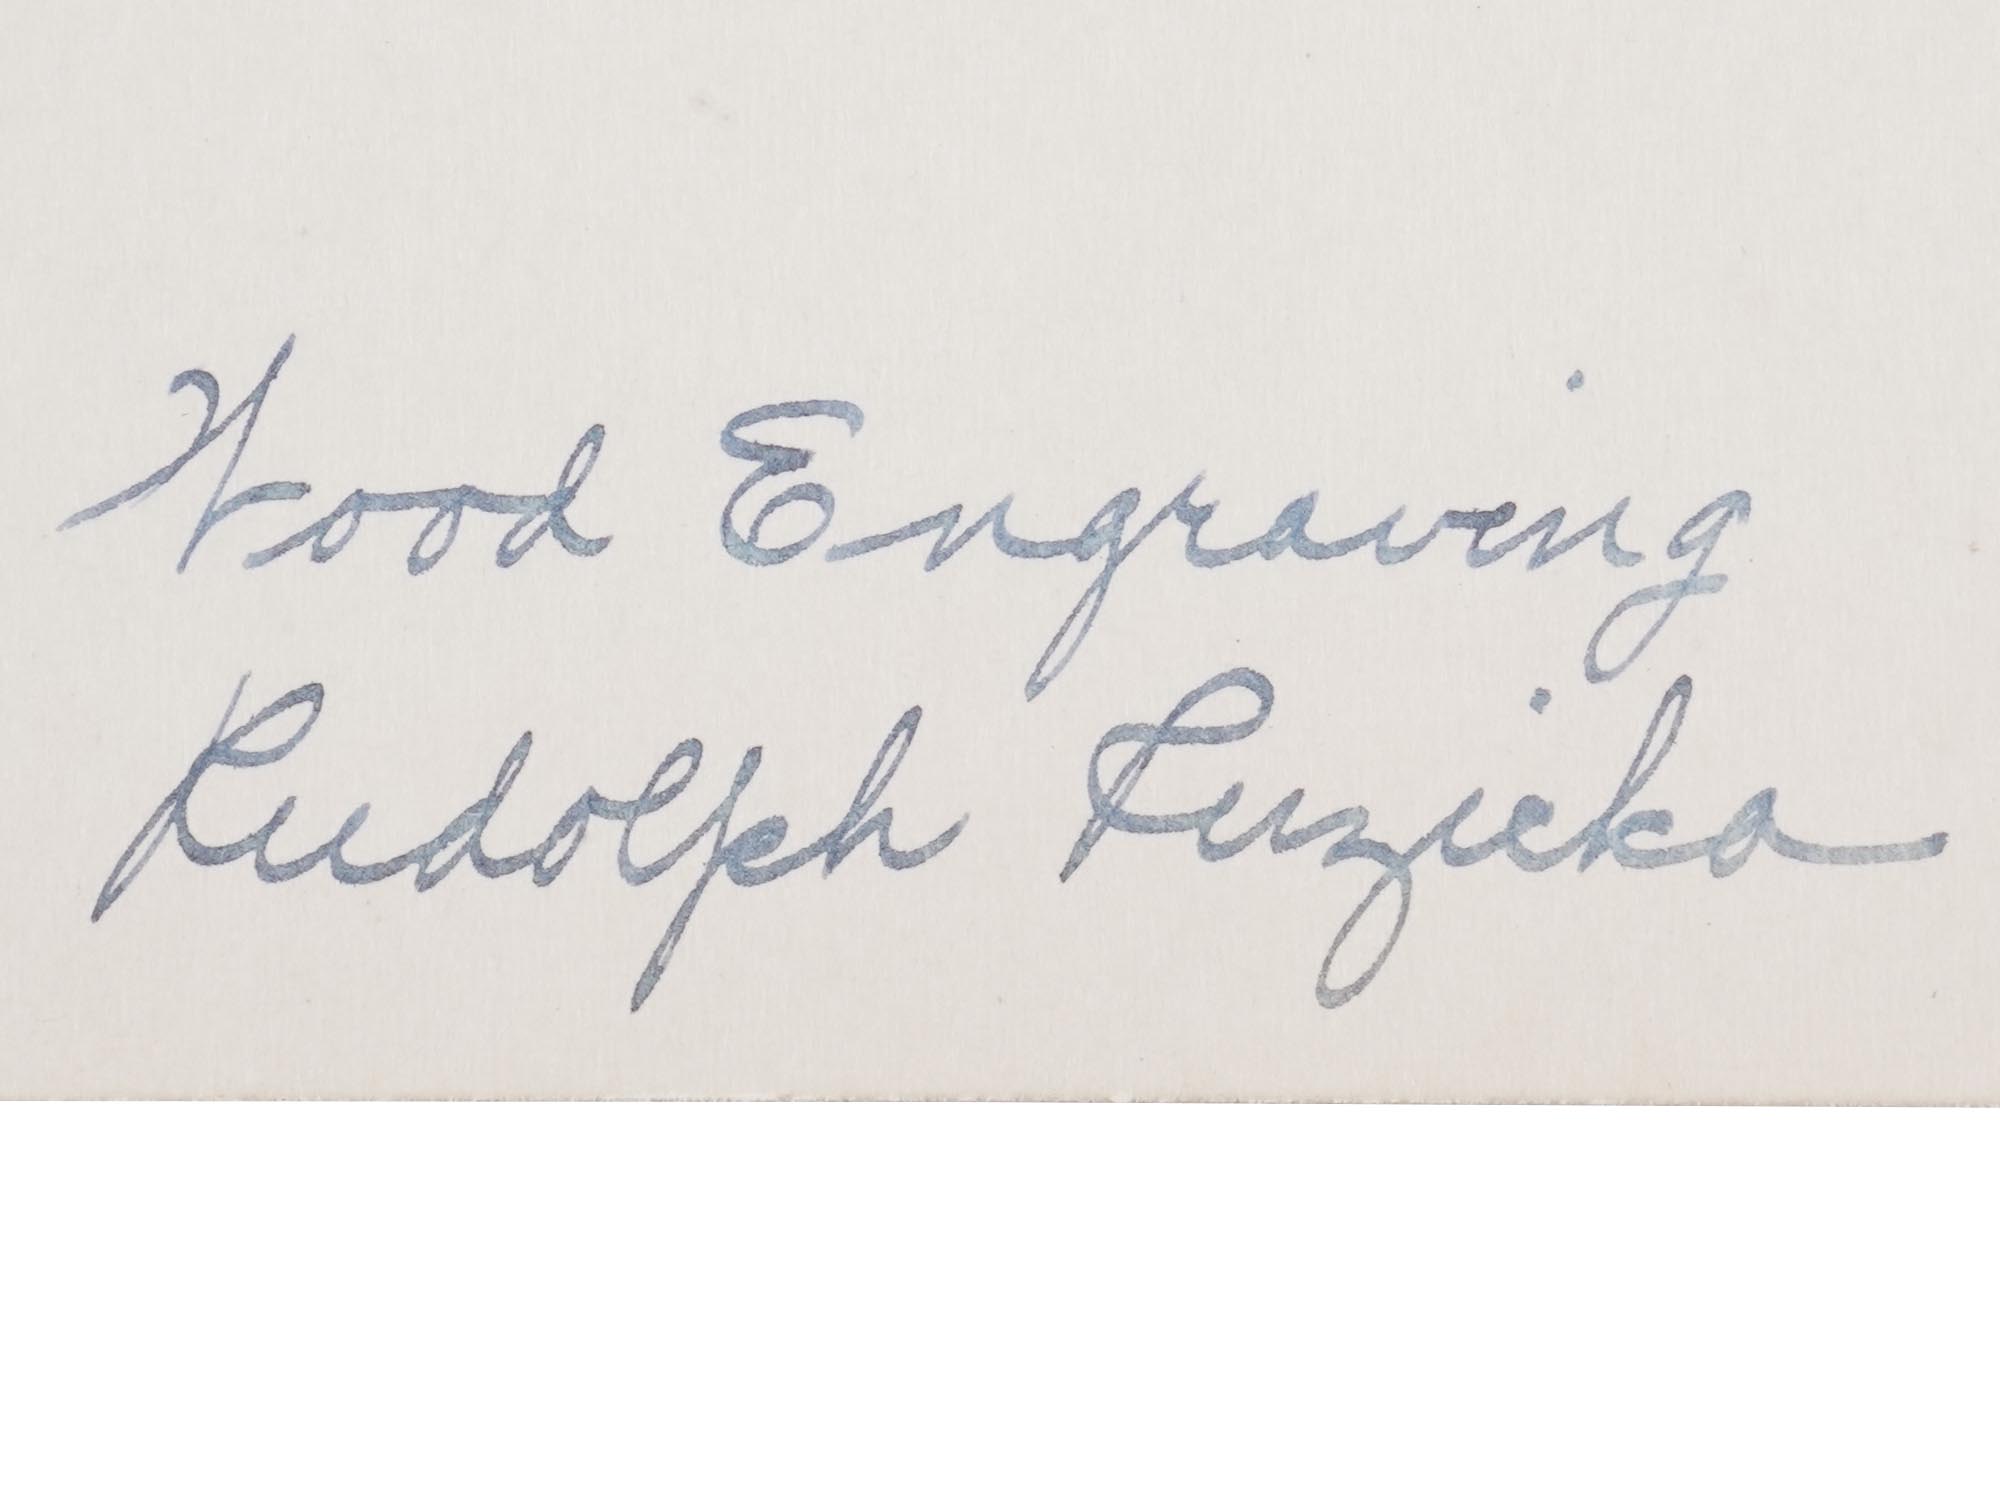 Wood Engraving
Rudolph Ruzicka